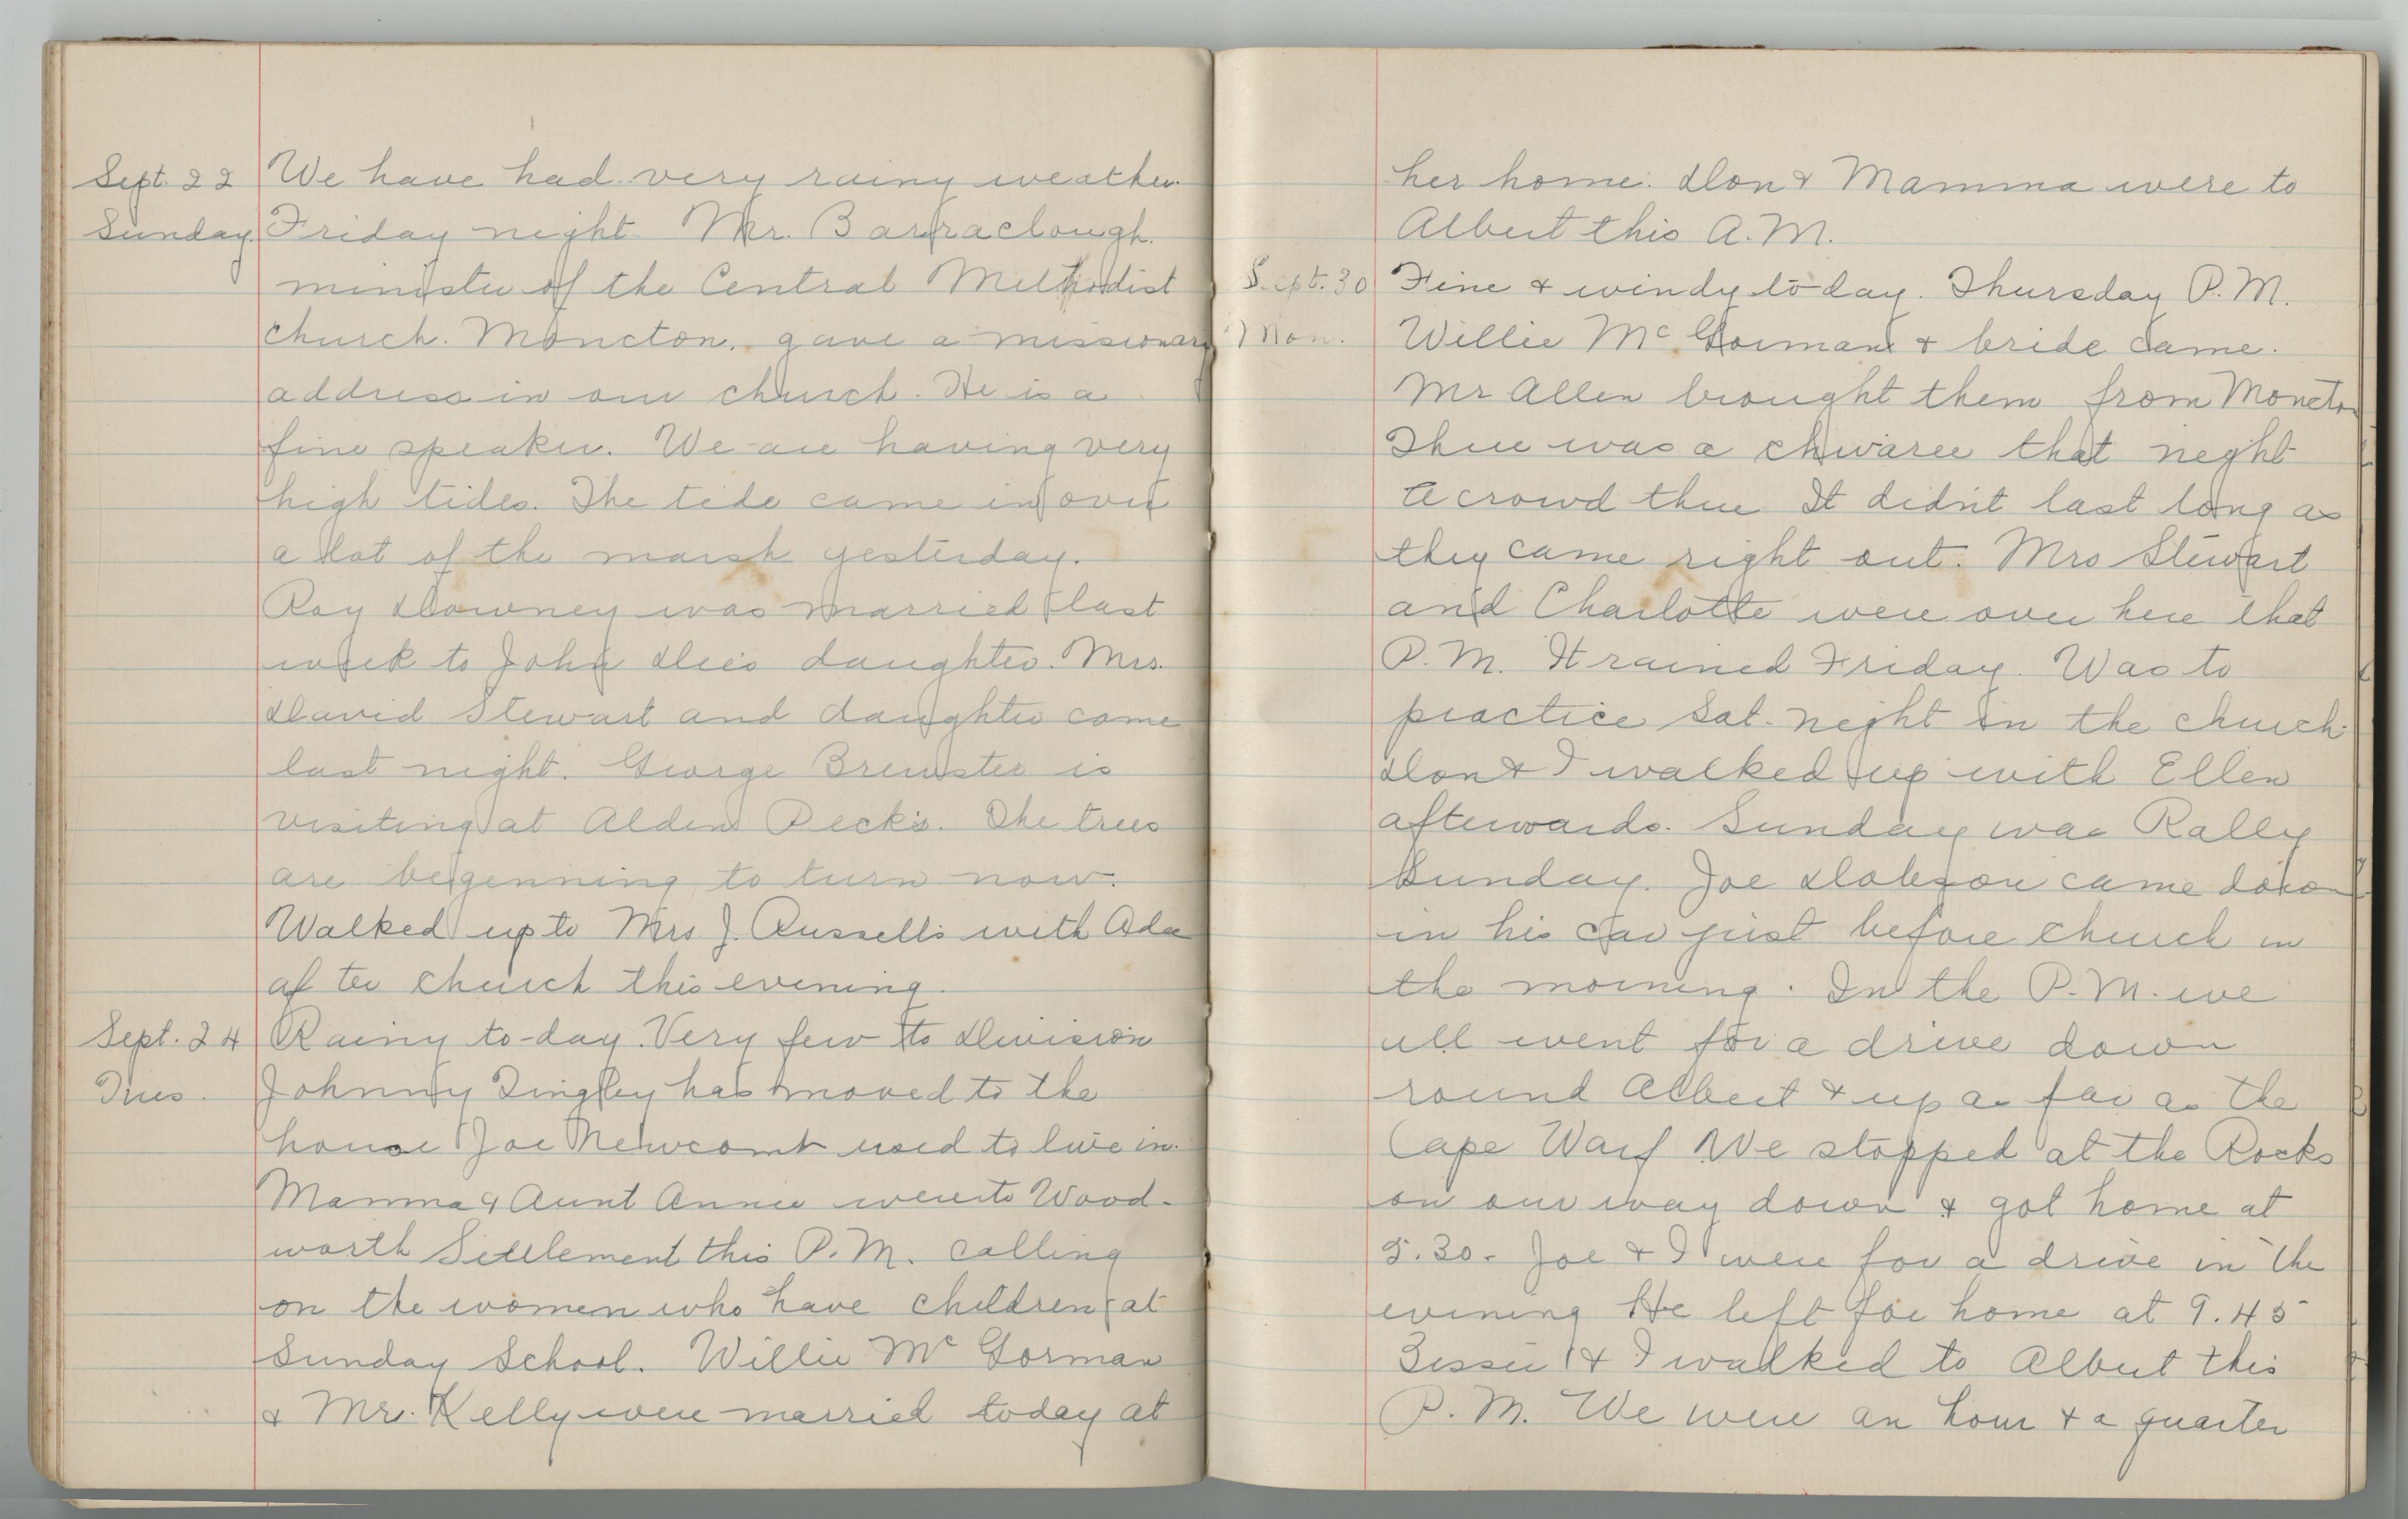 Sept. 22 We have had very rainy weather.
Sunday. Friday night Mr. Barraclough.
minister of the Central Methodist
church. Moncton. gave a missionary
address in our church. He is a
fine speaker. We are having very
high tides. The tide came in over
a lot of the marsh yesterday.
Roy Downey was married last
week to John Dee's daughter. Mrs.
David Stewart and daughter came
last night. George Brewster is
visiting at Alden Peck's. The trees
are begenning to turn now.
Walked up to Mrs J. Russell's with Ada
after church this evening.
Sept. 24 Rainy to-day. Very few to Division
Tues. Johnny Tingley has moved to the
house Joe Newcomb used to live in.
Mamma & Aunt Annie were to Wood-
worth Settlement this P.M. calling
on the women who have children at
Sunday School. Willie McGorman
& Mr. Kelly were married today at
her home. Don & Mamma were to
Albert this A.M.
Sept. 30 Fine & windy to-day. Thursday P.M.
Mon. Willie McGorman & bride came.
Mr Allen brought them from Moncton
There was a chivaree that night
a crowd there It didn't last long as
they came right out. Mrs Stewart
and Charlotte were over here that
P.M. It rained Friday. Was to
practice Sat. night in the church.
Don & I walked up with Ellen
afterwards. Sunday was Rally
Sunday. Joe Dobson came down
in his car just before church in
the morning. In the P.M. we
all went for a drive down
round Albert & up as far as the
Cape Warf We stopped at the Rocks
on our way down & got home at
5.30. Joe & I were for a drive in the
evening He left for home at 9.45
Bessie & I walked to Albert this
P.M. We were an hour & a quarter